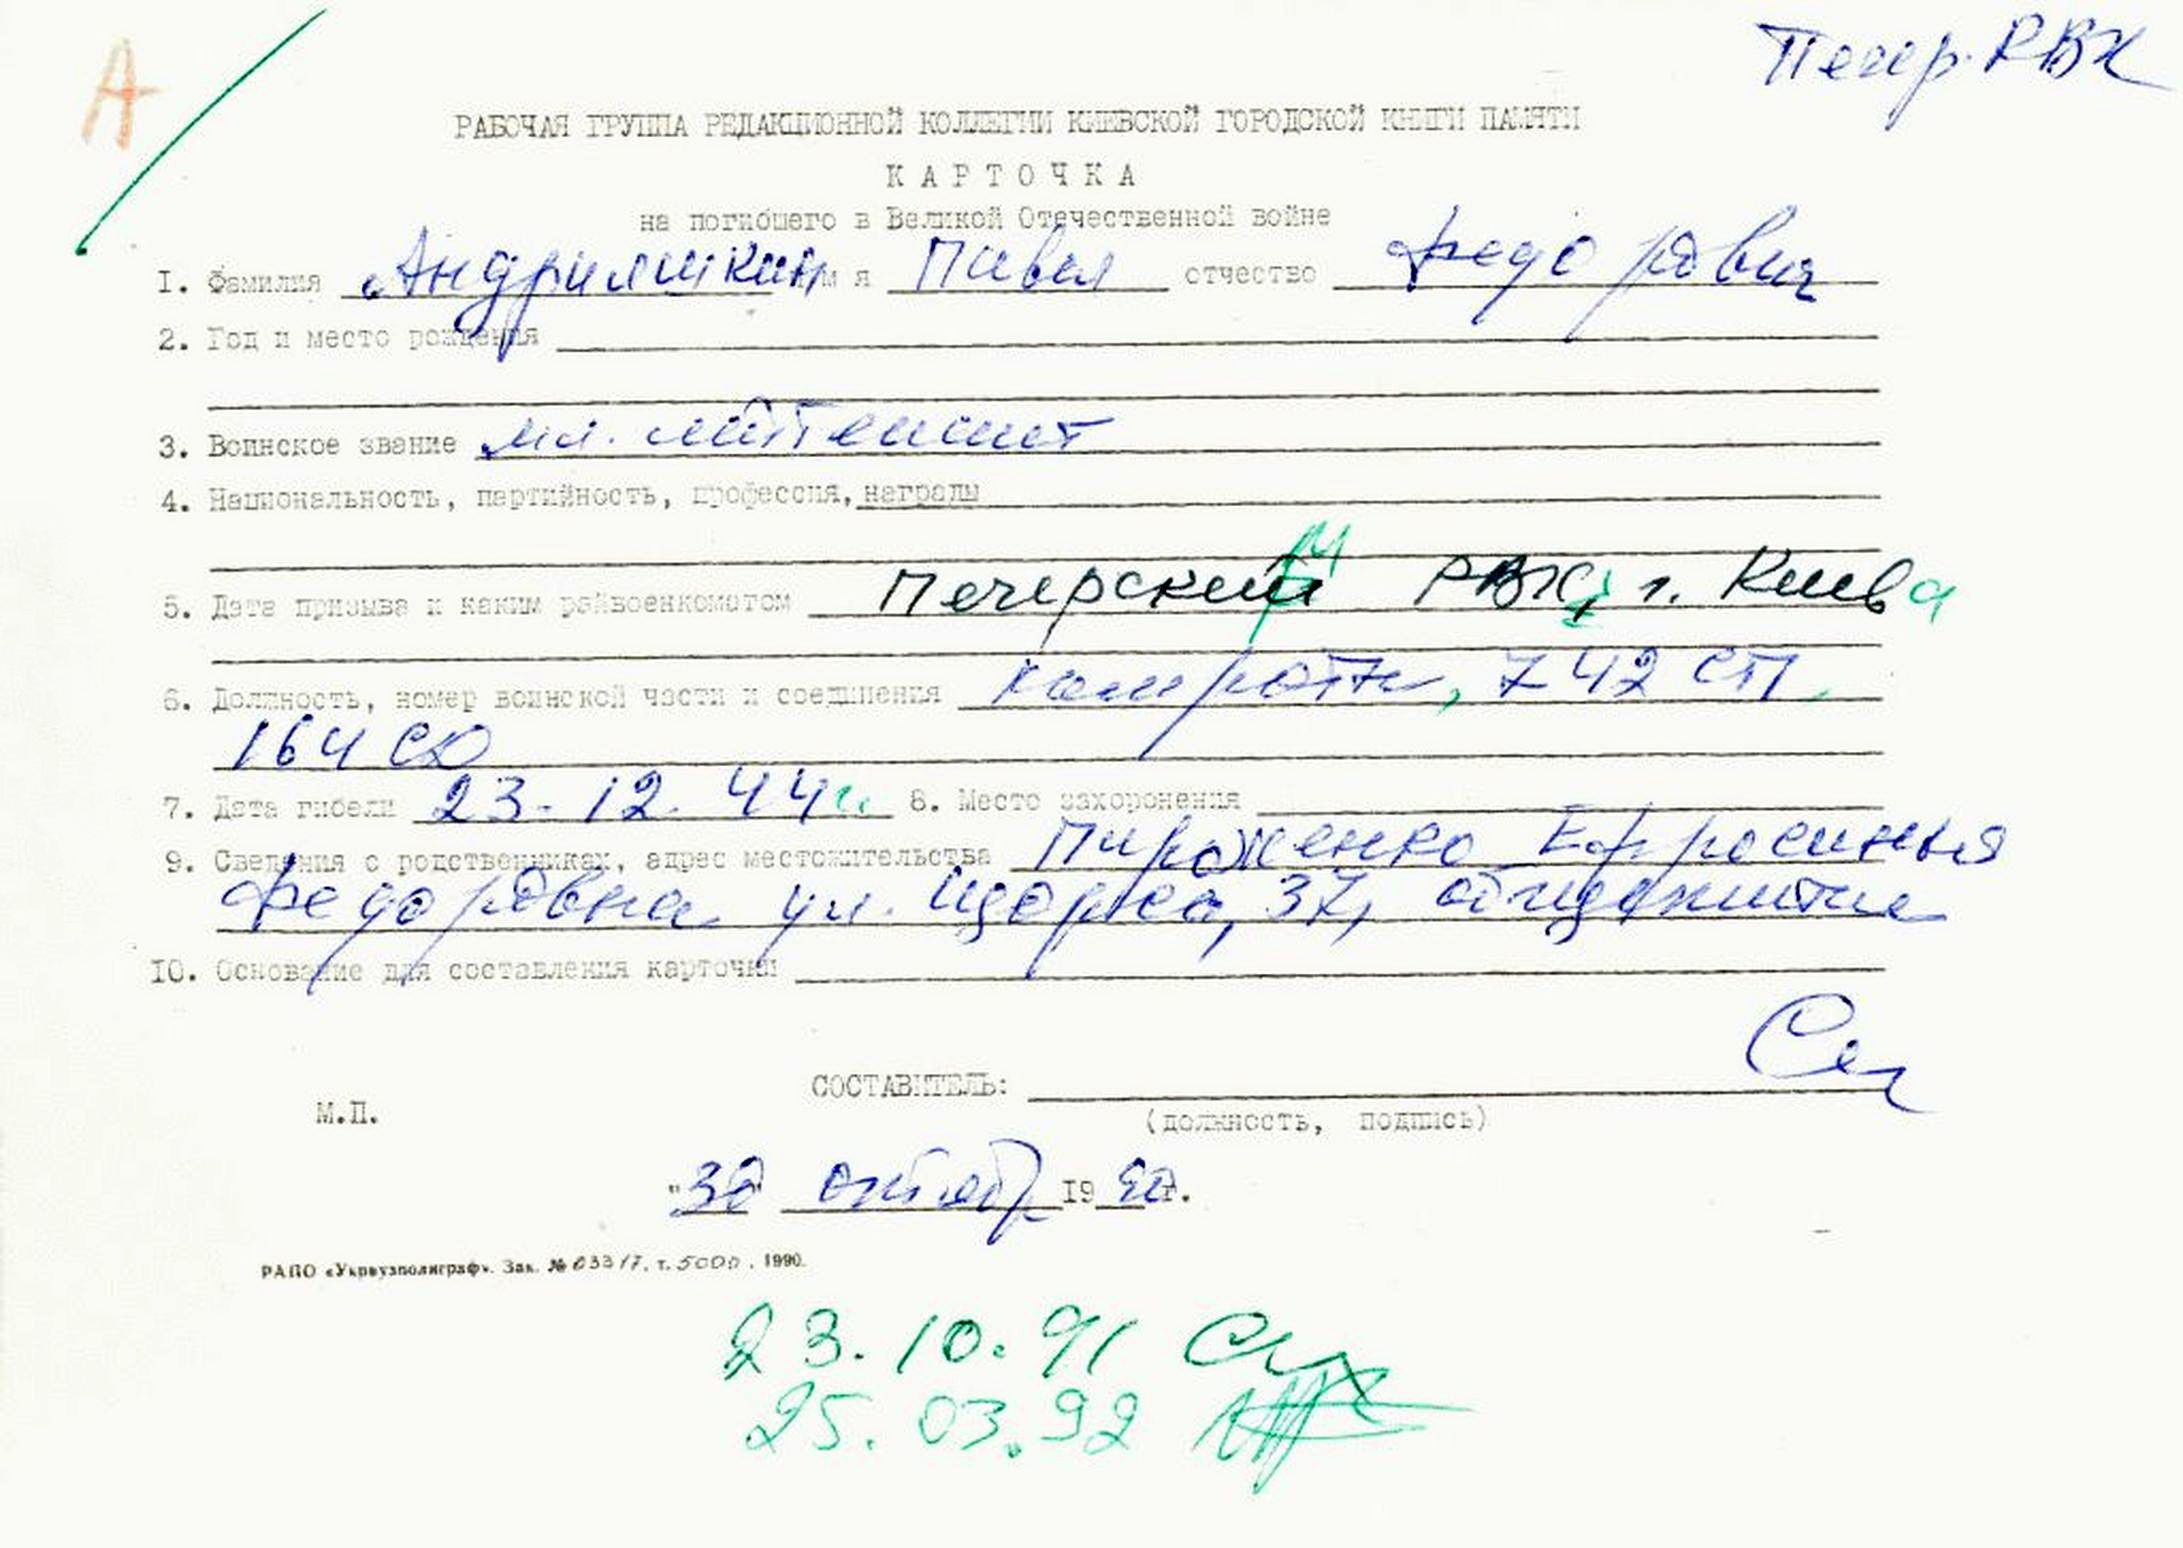 А
Печер. РВК
РАБОЧАЯ ГРУППА РЕДАКЦИОННОЙ КОЛЛЕГИИ КИЕВСКОЙ ГОРОДСКОЙ КНИГИ ПАМЯТИ
КАРТОЧКА
на погибшего в Великой Отечественной войне
1. Фамилия имя Павел отчество Федорович
2. Год и место рождения
3. Воинское звание мл. лейтенант
4. Национальность, партийность, профессия, награды
5. Дата призыва и каким райвоенкоматом Печерским РВК, г. Киева
6. Должность, номер воинской части и соединения ком роты, 742 СП,
164 СД
7. Дата гибели 23.12.44г. 8. Место захоронения
9. Сведения о родственниках, адрес местожительства Пироженко Ефросинья
Федоровна ул. Щорса, 37, общежитие
10. Основание для составления карточки
СОСТАВИТЕЛЬ:
М.П.
(должность, подпись)
"30" октябр 1990г.
РАПО «Укрвузполиграф». Зак. № 03317, т. 5000. 1990.
23.10.91
25.03.92